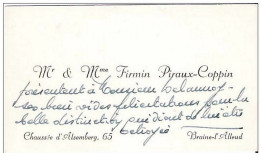 Mr & Mme Firmin Pyaux-Coppin
présentent à Monsieur Delannoy
ses bien vives félicitations pour la
belle distinction qui vient de lui être
octroyée
Chaussée d'Alsemberg, 65 Braine-l'Alleud